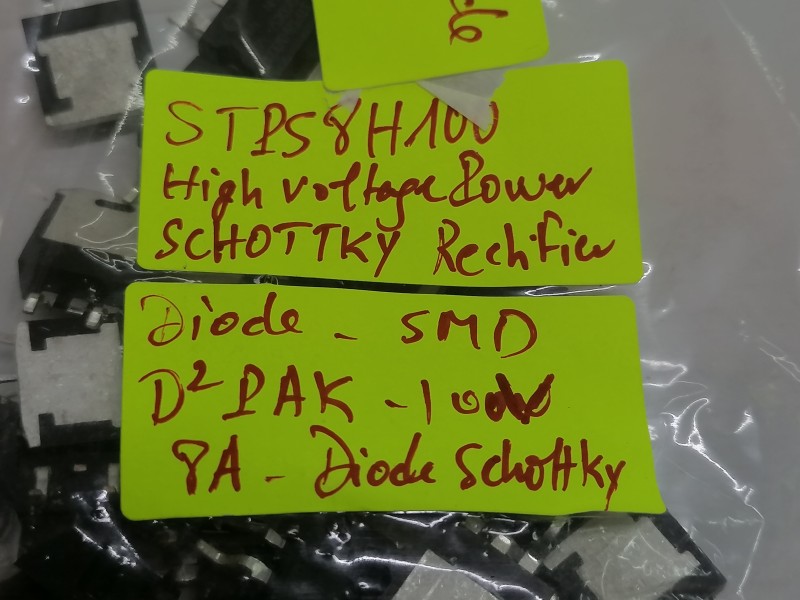 STPS8H100
High voltage Power
SCHOTTKY Rectifier
Diode - SMD
D²PAK - 100V
8A - Diode Schottky